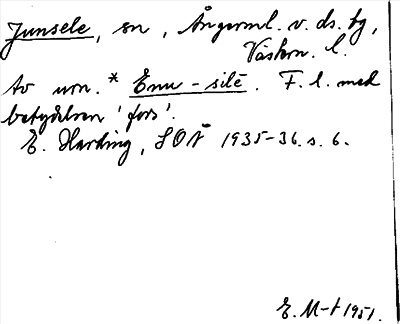 Junsele, sn, Ångerml. v. ds. tg,
Västern. l.
Av urn. * Emu-silē. F. l. med
betydelsen 'fors'.
E. Harding, SOÅ 1935-36. s. 6.
E. M-t 1951.